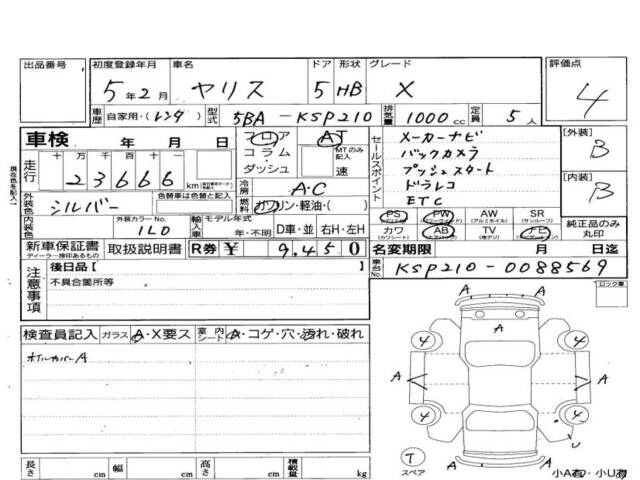 出品番号
初度登録年月 車名 ドア 形状 グレード 評価点
5年2月 ヤリス 5 HB X 4
車歴 自家用・(レンタ) 型式 5BA-KSP210 排気量 1000cc 定員 5人
車検 年 月 日 フロア コラム・ダッシュ AT MTのみ記入 速
走行 十 万 千 百 十 一
23666 km
冷房 A・C
外装色 シルバー 色替車は色替と記入 燃料 ガソリン・軽油・( )
内装色 外装カラーNo. 1L0 輸入車 モデル年式 年・不明 D車・並 右H・左H
新車保証書 取扱説明書 R券 ¥ 9,450
ディーラー捺印あるもの
現在色を記入
セールスポイント
メーカーナビ
バックカメラ
プッシュスタート
ドラレコ
ETC
[外装] B
[内装] B
PS PW AW SR
(パワステ) (パワーウィンド) (アルミホイル) (サンルーフ)
カワ AB TV
(カワシート) (エアバック) (地デジ)
純正品のみ丸印
名変期限 月 日迄
車台No. KSP210-0088569
注意事項
後日品[ ]
不具合箇所等
ロック車
検査員記入 ガラス A・X要ス 室内シート A・コゲ・穴・汚れ・破れ
ホイルカバーA
A
4 4
A A
A A
4 4
U
T
スペア
A
小A有・小U有
長さ cm 幅 cm 高さ cm 積載量 kg